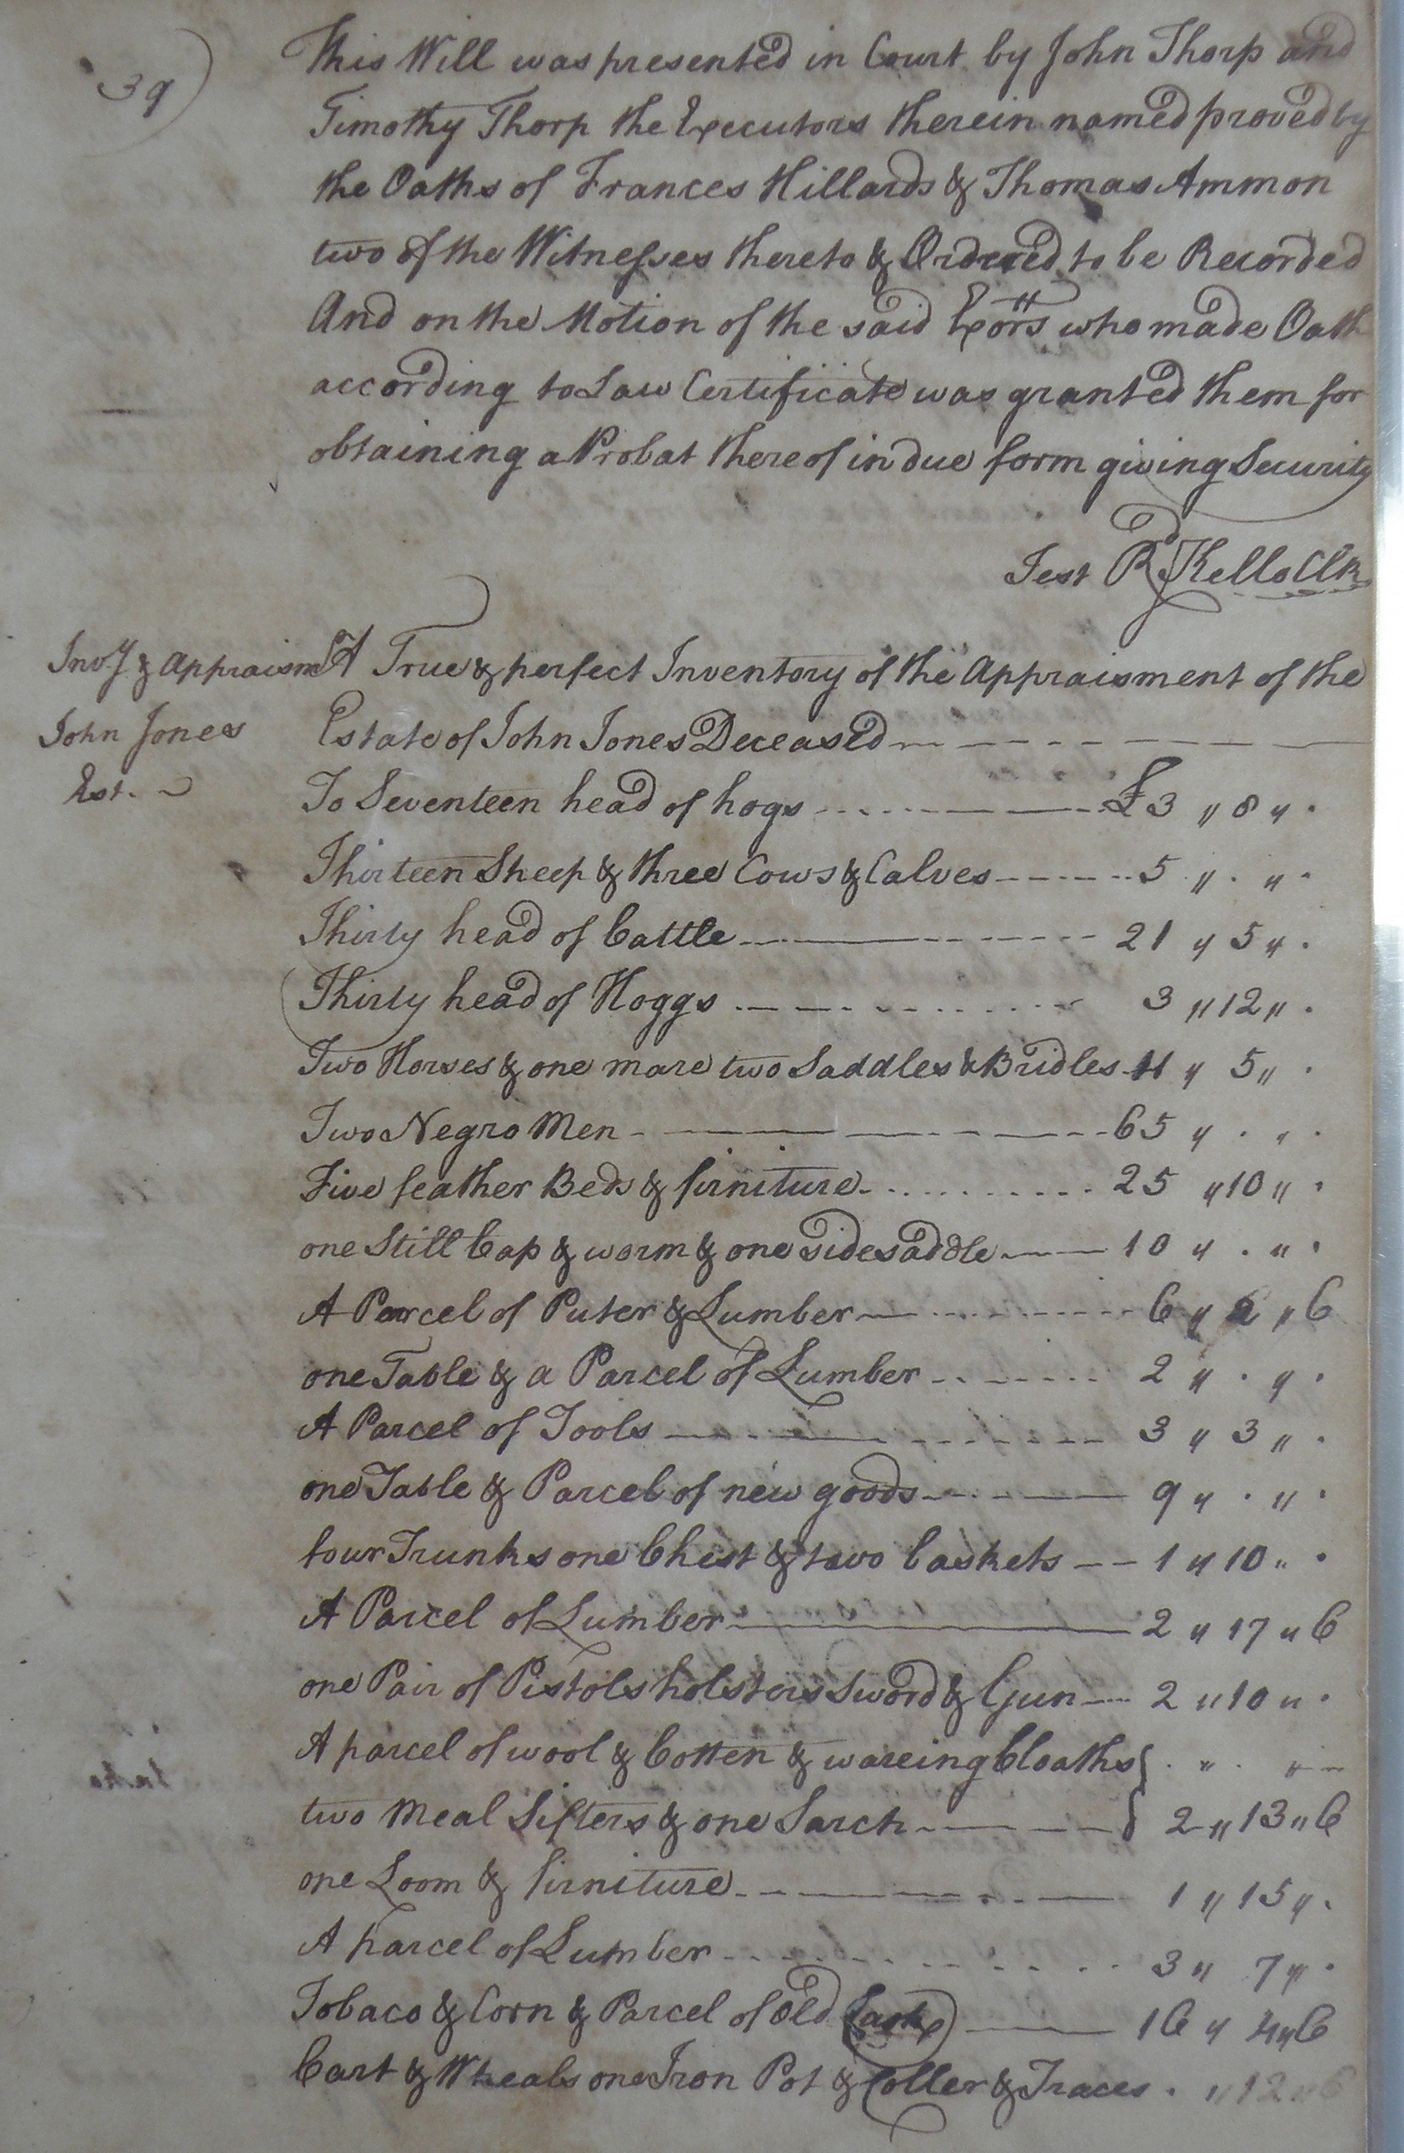 39)
This Will was presented in Court by John Thorp and
Timothy Thorp the Executors therein named proved by
the Oaths of Frances Hillards & Thomas Ammon
two of the Witnesses thereto & Ordered to be Recorded
And on the Motion of the said Exors who made Oath
according to Law Certificate was granted them for
obtaining a Probat thereof in due form giving Security
Test Rd Kello Clk
Invy & Appraismt
John Jones
Est.
A True & perfect Inventory of the Appraisment of the
Estate of John Jones Deceased
To Seventeen head of hogs £ 3 " 8 " .
Thirteen Sheep & three Cows & Calves 5 " . " .
Thirty head of Cattle 21 " 5 " .
Thirty head of Hoggs 3 " 12 " .
Two Horses & one mare two Saddles & Bridles 11 " 5 " .
Two Negro Men 65 " . " .
Five feather Beds & firniture 25 " 10 " .
one Still Cap & worm & one sidesaddle 10 " . " .
A Parcel of Puter & Lumber 6 " 2 " 6
one Table & a Parcel of Lumber 2 " . " .
A Parcel of Tools 3 " 3 " .
one Table & Parcel of new goods 9 " . " .
four Trunks one Chist & two Caskets 1 " 10 " .
A Parcel of Lumber 2 " 17 " 6
one Pair of Pistols holsters Sword & Gun 2 " 10 " .
A parcel of wool & Cotten & wareing Cloaths } . " . "
two Meal Sifters & one Sarch } 2 " 13 " 6
one Loom & firniture 1 " 15 " .
A parcel of Lumber 3 " 7 " .
Tobaco & Corn & Parcel of Old Cask 16 " 4 " 6
Cart & Wheals one Iron Pot & Coller & Traces . " 12 " 6